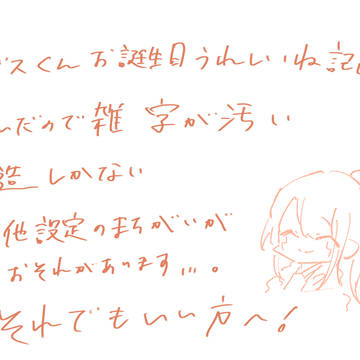 スくんお誕生日うれしいね記
だので雑 字が汚い
しかない
他設定のまちがいが
おそれがあります...。
それでもいい方へ!